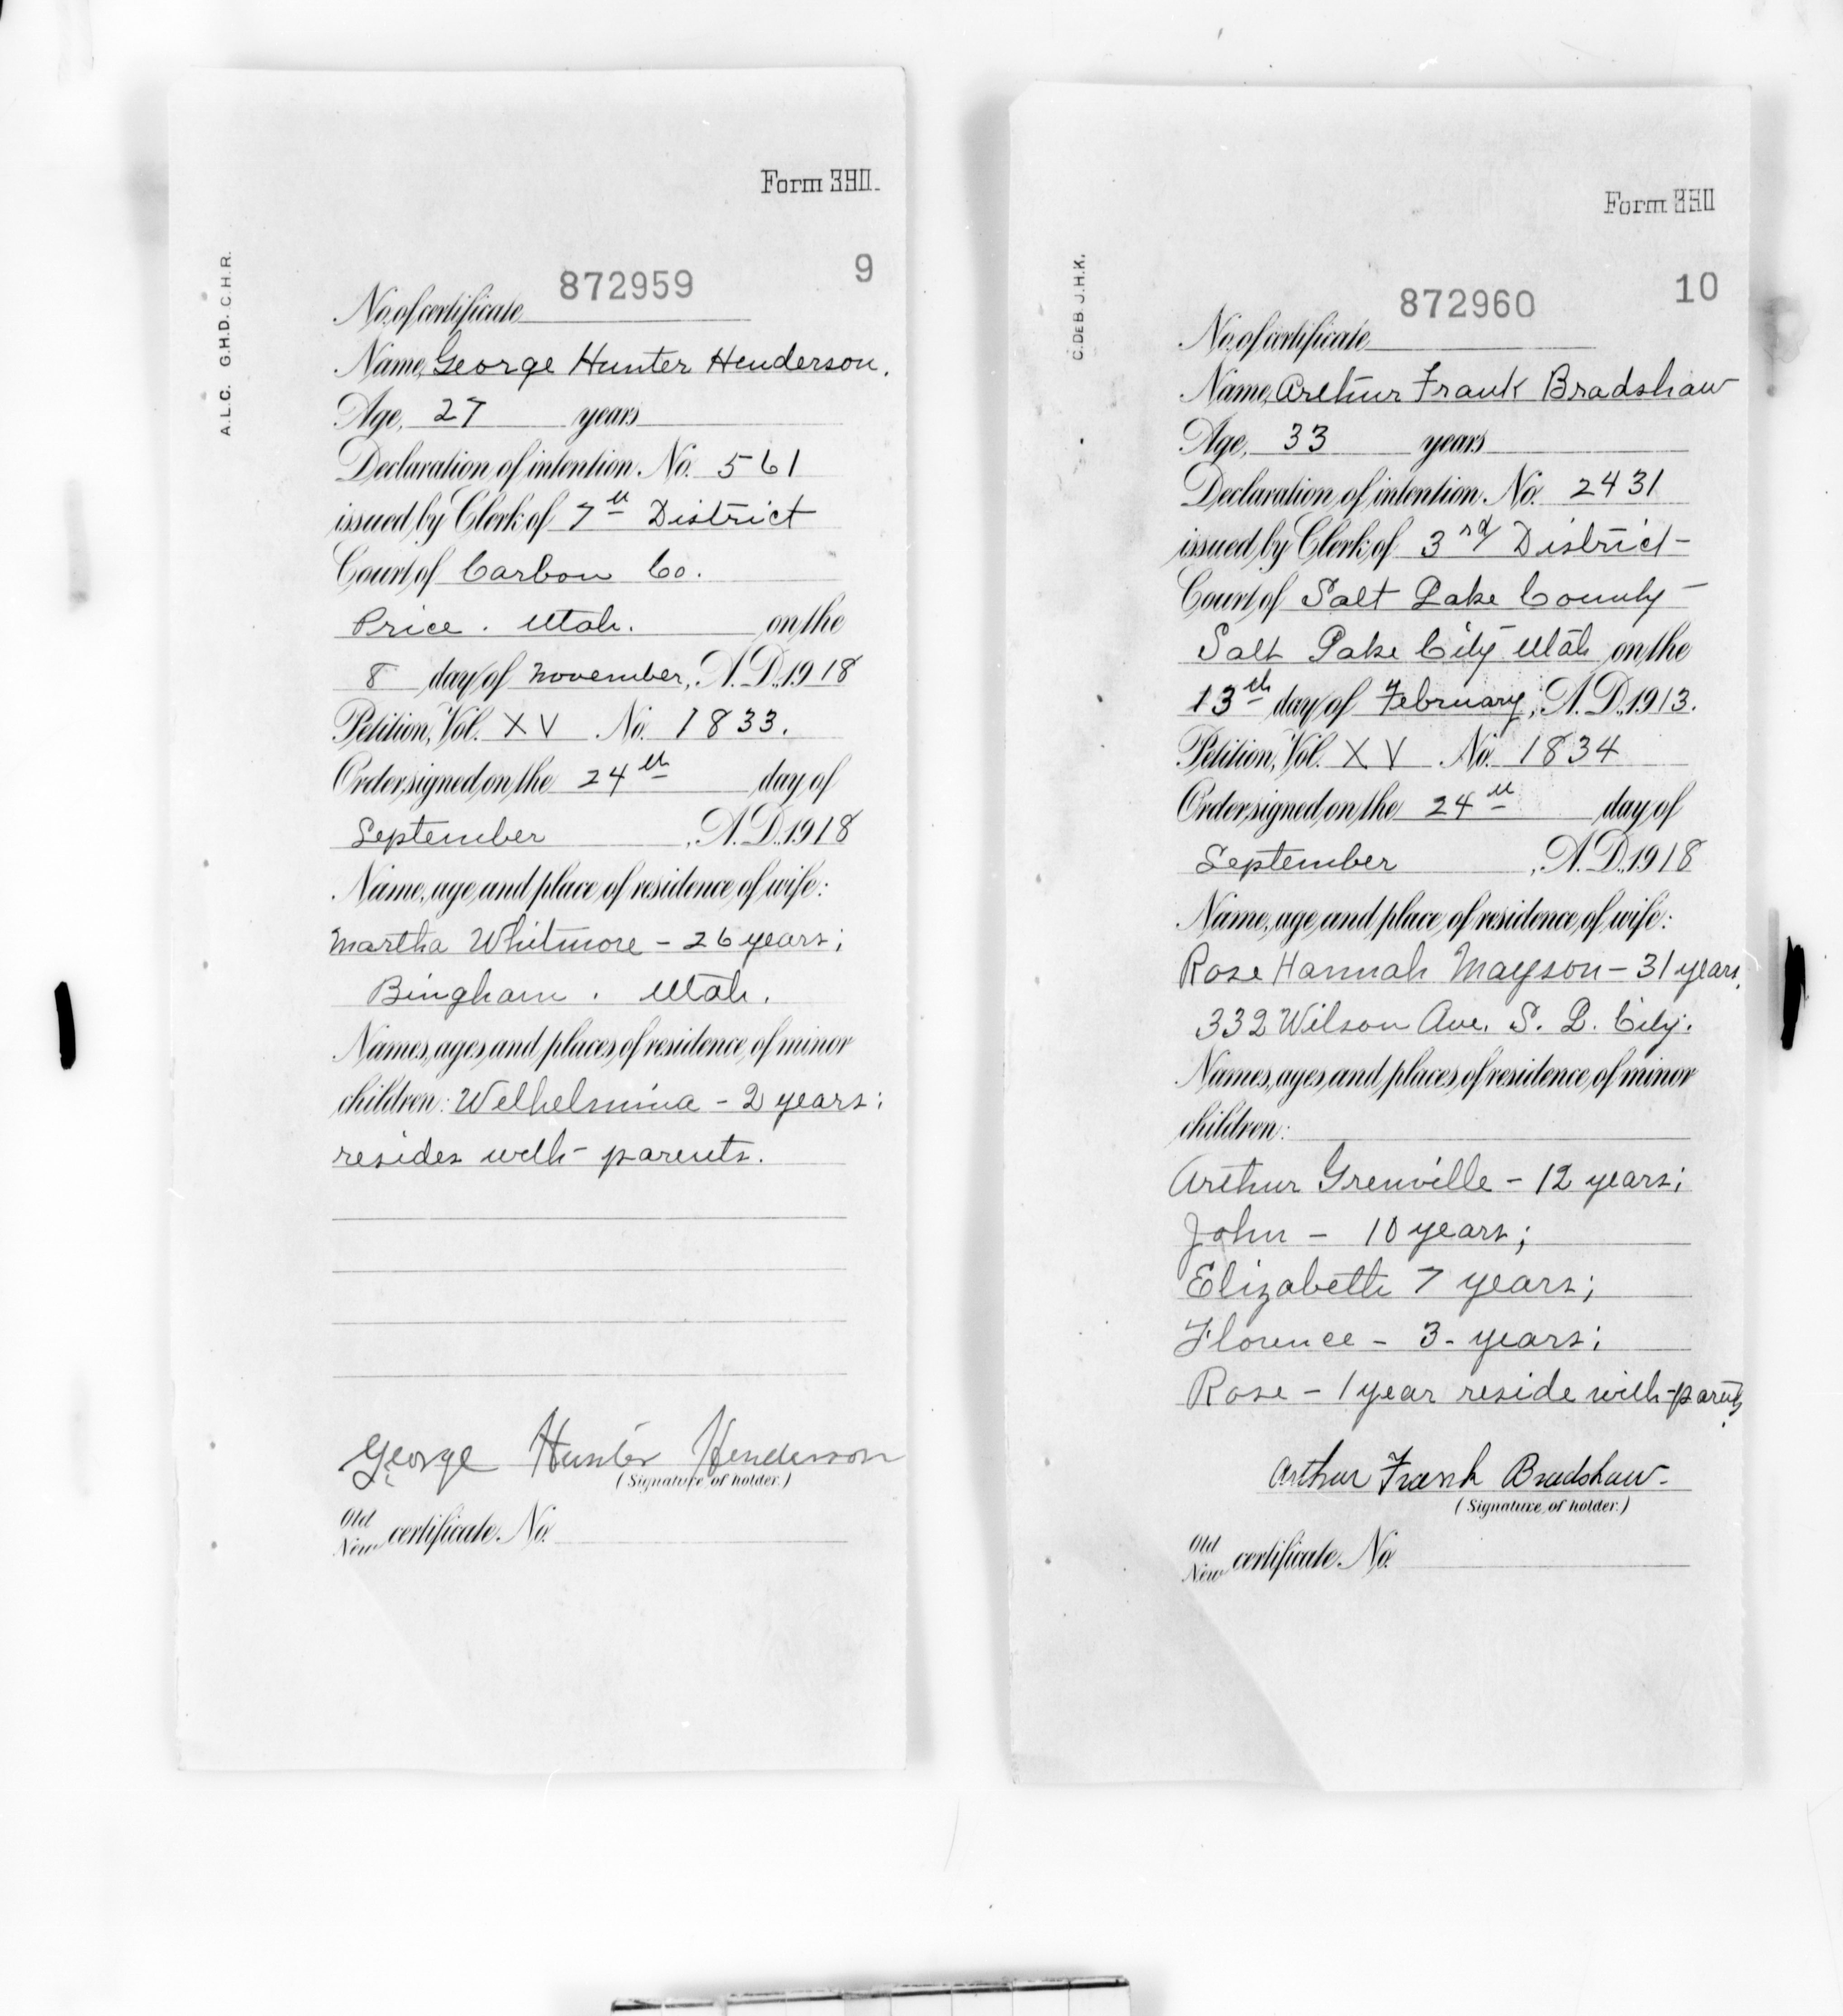 Form 390.
A.L.C. G.H.D. C.H.R.
9
872959
No. of certificate
Name, George Hunter Henderson.
Age, 27 years
Declaration of intention No. 561
issued by Clerk of 7th District
Court of Carbon Co.
Price. Utah. on the
8 day of november, A.D. 1918
Petition, Vol. XV No. 1833.
Order signed on the 24th day of
September, A.D. 1918
Name, age and place of residence of wife:
Martha Whitmore - 26 years;
Bingham. Utah.
Names, ages and places of residence of minor
children: Welhelmina - 2 years;
resides with parents.
George Hunter Henderson
(Signature of holder.)
Old
New certificate No.
Form 390
C.DeB. J.H.K.
10
872960
No. of certificate
Name, Arthur Frank Bradshaw
Age, 33 years
Declaration of intention No. 2431
issued by Clerk of 3rd District -
Court of Salt Lake County -
Salt Lake City Utah on the
13th day of February, A.D. 1913.
Petition, Vol. XV No. 1834
Order signed on the 24th day of
September, A.D. 1918
Name, age and place of residence of wife:
Rose Hannah Mayson - 31 years,
332 Wilson Ave. S. L. City.
Names, ages and places of residence of minor
children:
Arthur Grenville - 12 years;
John - 10 years;
Elizabeth 7 years;
Florence - 3 - years;
Rose - 1 year reside with parents
Arthur Frank Bradshaw.
(Signature of holder.)
Old
New certificate No.